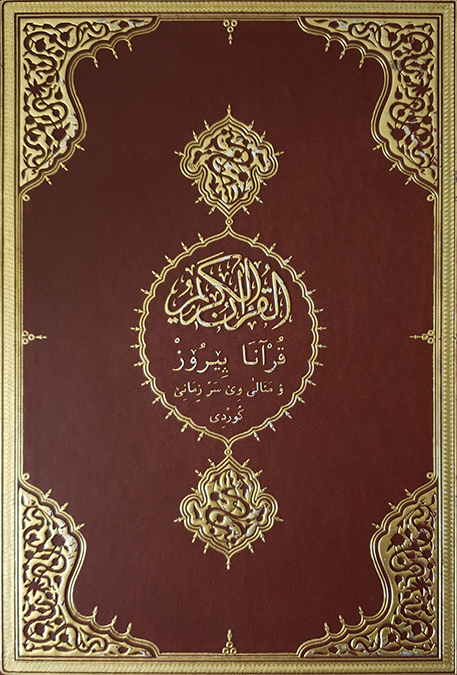 القرآن الكريم
قُرْآنَا پِيرُوزْ
وَ مَعَالٰى وِىٰ سَرْ زِمَانِىٰ
كُورْدِى